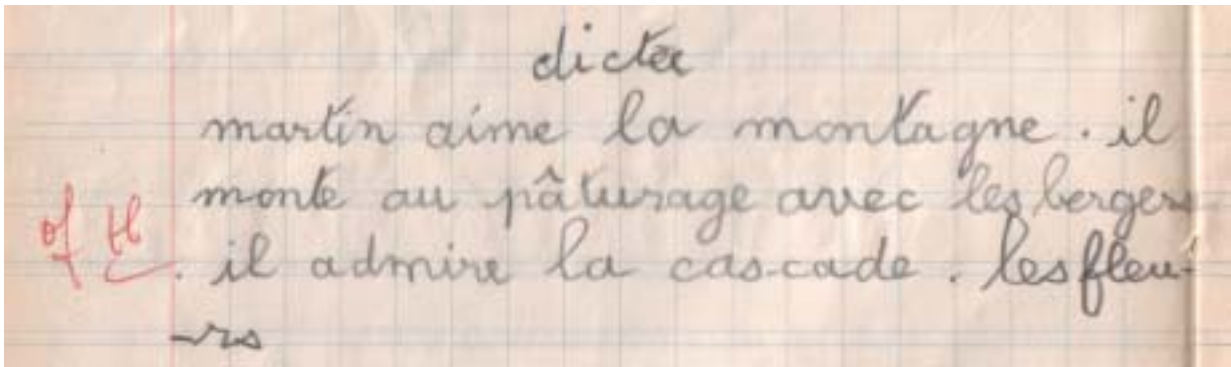 dictée
martin aime la montagne. il
monte au pâturage avec les bergers
of tb . il admire la cascade. les fleu-
-rs